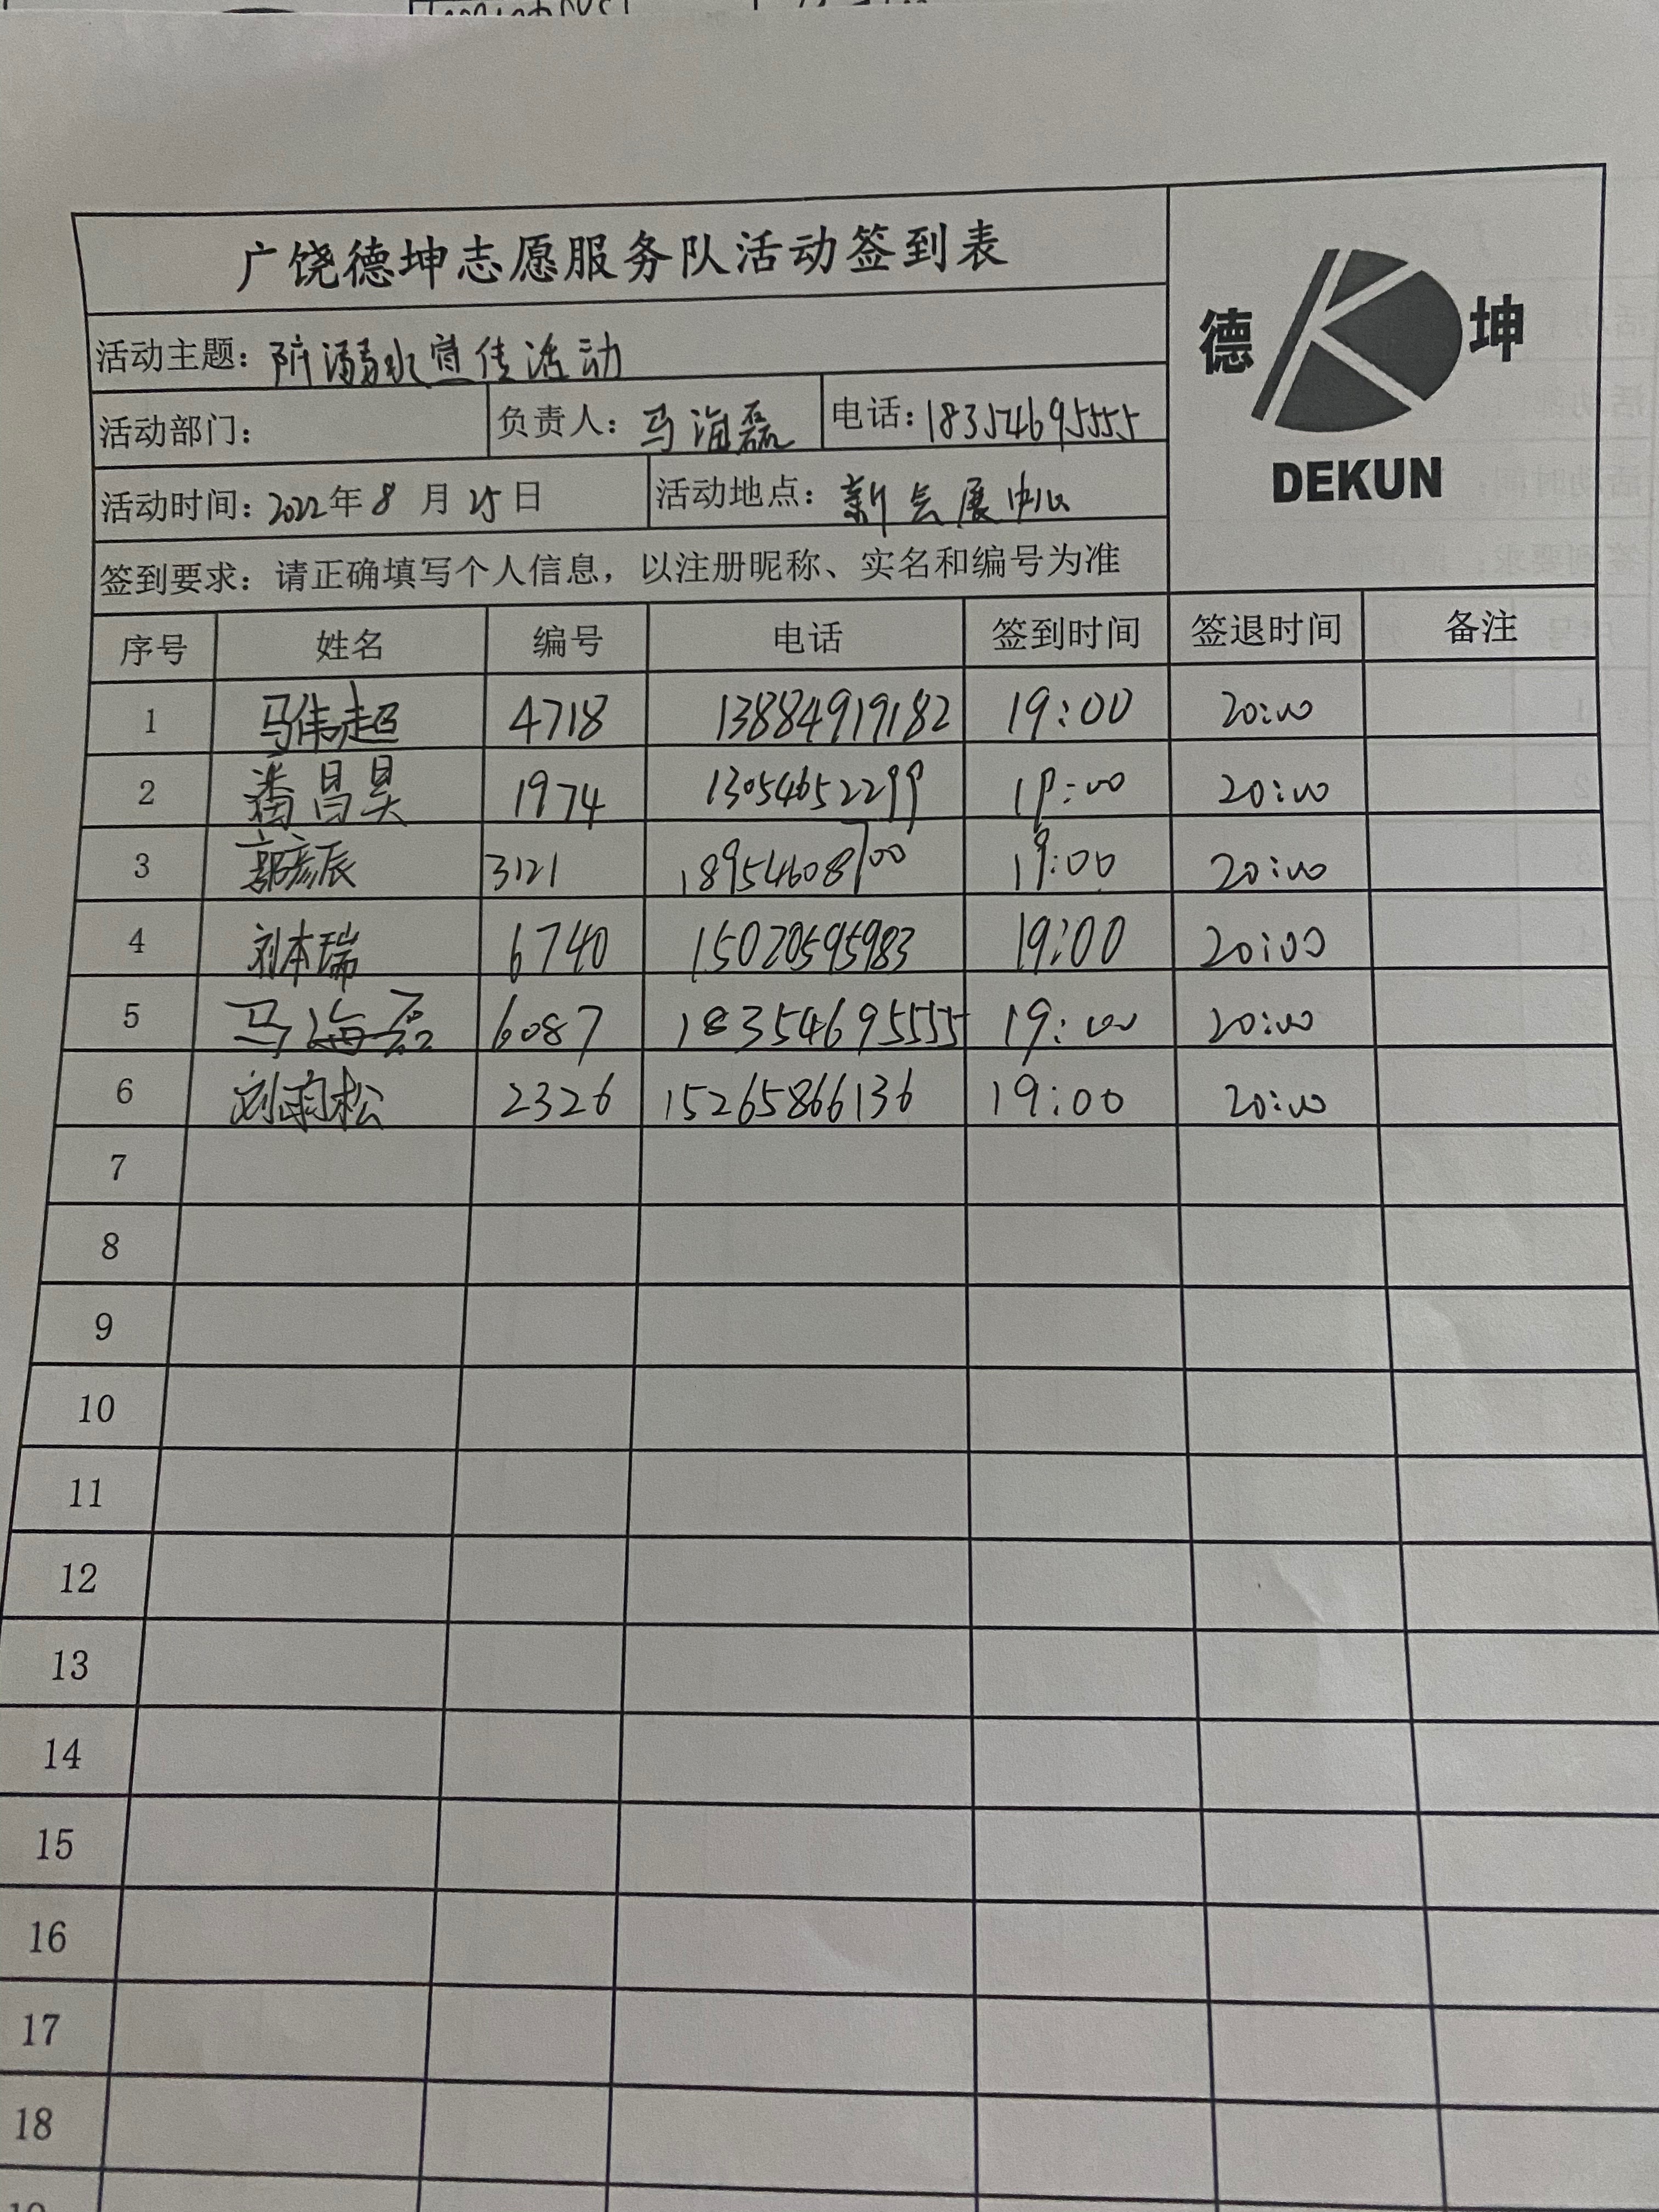 广饶德坤志愿服务队活动签到表
德 坤
DEKUN
活动主题：防溺水宣传活动
活动部门： 负责人：马海磊 电话：18354695555
活动时间：2022年8月25日 活动地点：新会展中心
签到要求：请正确填写个人信息，以注册昵称、实名和编号为准
序号 姓名 编号 电话 签到时间 签退时间 备注
1 马伟超 4718 13884919182 19:00 20:00
2 潘昌昊 1974 13054652299 19:00 20:00
3 郭彦辰 3121 18954608700 19:00 20:00
4 刘本瑞 6740 15020595983 19:00 20:00
5 马海磊 6087 18354695555 19:00 20:00
6 刘雨松 2326 15265866136 19:00 20:00
7
8
9
10
11
12
13
14
15
16
17
18